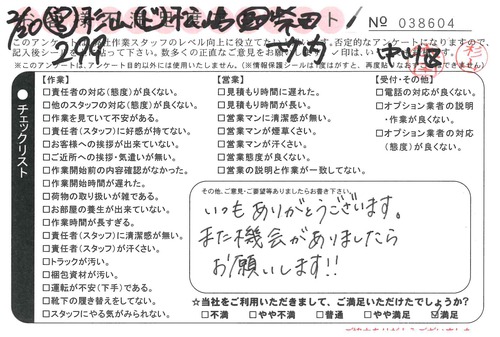 № 038604
このアンケートは
記入後シールを
※このアンケートは、アンケート目的以外には使用いたしません。
チェックリスト
【作業】
□責任者の対応(態度)が良くない。
□他のスタッフの対応(態度)が良くない。
□作業を見ていて不安がある。
□責任者(スタッフ)に好感が持てない。
□お客様への挨拶が出来ていない。
□ご近所への挨拶・気遣いが無い。
□作業開始前の内容確認がなかった。
□作業開始時間が遅れた。
□荷物の取り扱いが雑である。
□お部屋の養生が出来ていない。
□作業時間が長すぎる。
□責任者(スタッフ)に清潔感が無い。
□責任者(スタッフ)が汗くさい。
□トラックが汚い。
□梱包資材が汚い。
□運転が不安(下手)である。
□靴下の履き替えをしてない。
□スタッフにやる気がみられない。
【営業】
□見積もり時間に遅れた。
□見積もり時間が長い。
□営業マンに清潔感が無い。
□営業マンが煙草くさい。
□営業マンが汗くさい。
□営業態度が良くない。
□営業の説明と作業が一致してない。
【受付・その他】
□電話の対応が良くない。
□オプション業者の説明
・作業が良くない。
□オプション業者の対応
(態度)が良くない。
その他、ご意見・ご要望等ありましたらお書き下さい。
いつもありがとうございます。
また機会がありましたら
お願いします!!
☆当社をご利用いただきまして、ご満足いただけたでしょうか?
□不満 □やや不満 □普通 □やや満足 ☑満足